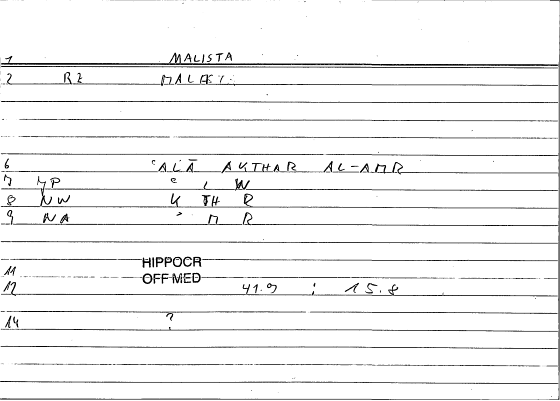 1 MALISTA
2 RZ MALAKY.
6 ʿALĀ AKTHAR AL-AMR
7 YP ʿ L W
8 NW K TH R
9 NA ʾ M R
11 HIPPOCR
OFF MED
12 41.9 : 15.8
14 ?